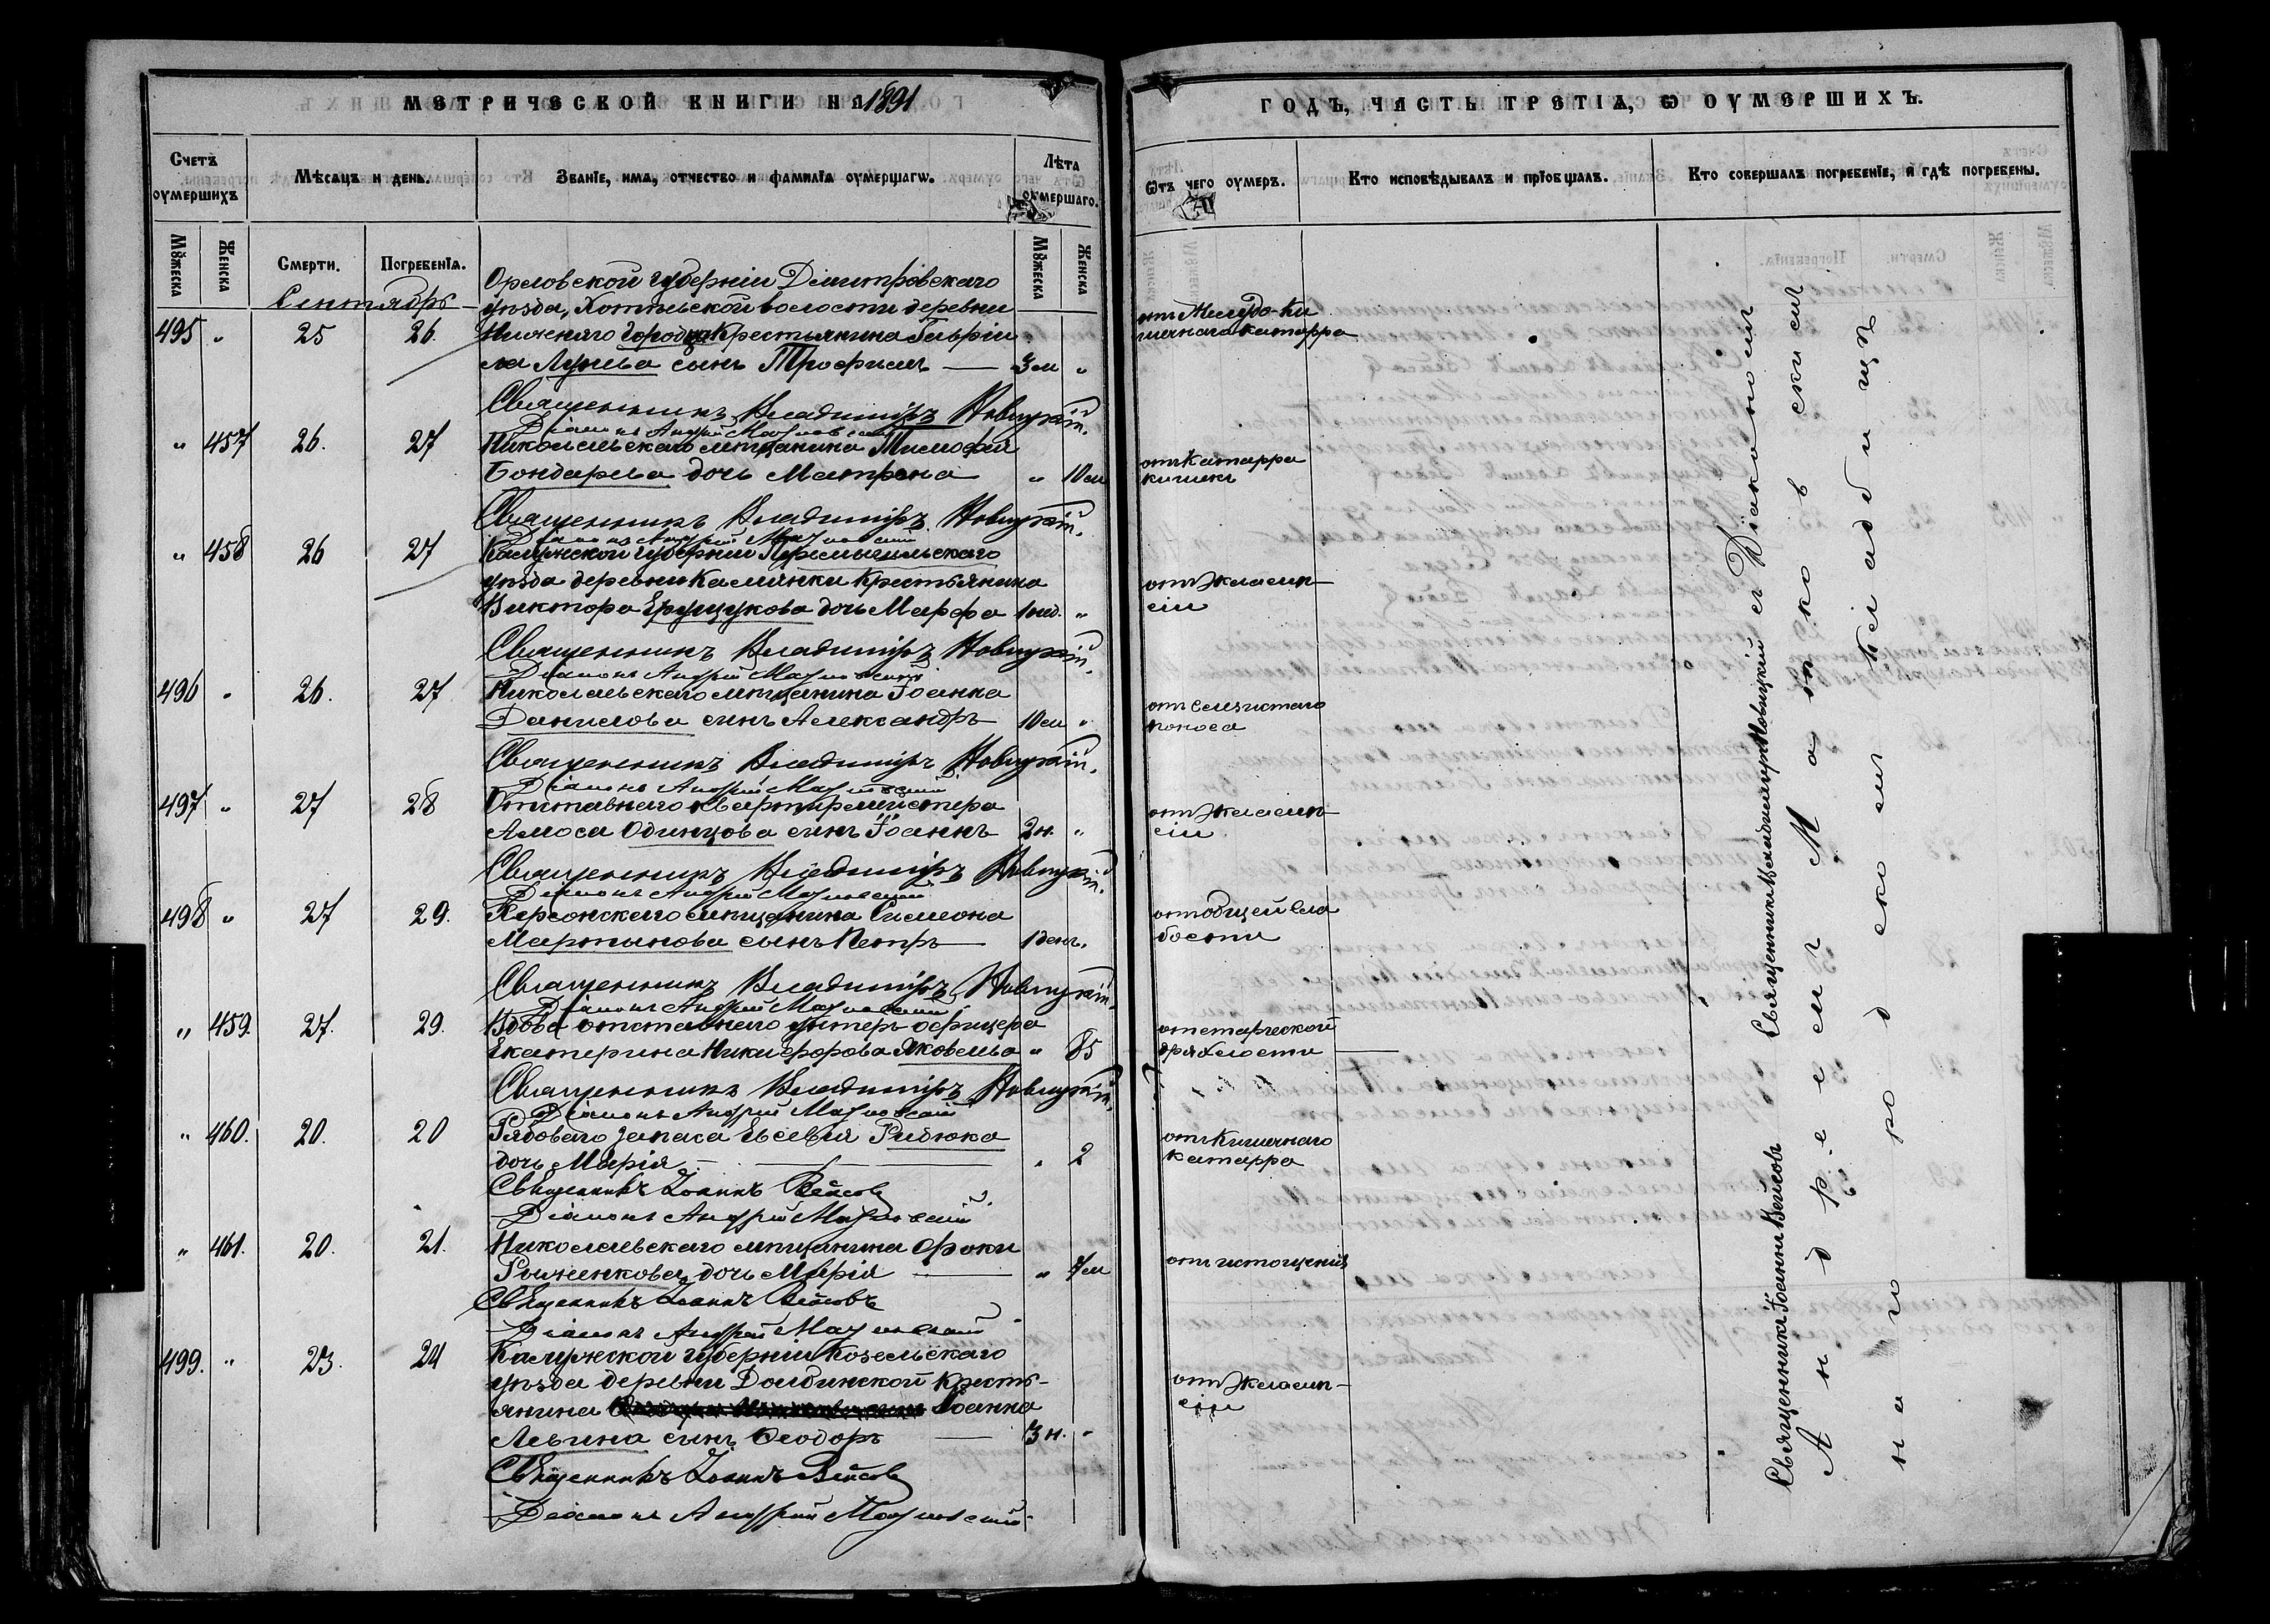 МЕТРИЧЕСКОЙ КНИГИ НА 1891
Счетъ оумершихъ
Мѣсяцъ и день.
Званіе, имя, отчество и фамилія оумершагѡ.
Лѣта оумершаго.
Мꙋжеска
Женска
Смерти.
Погребенія.
Мꙋжеска
Женска
Сентябрь
Орловской губерніи Дмитровскаго
уѣзда, Хотьевской волости деревни
495 " 25 26. Нижняго Городца Крестьянина Гаврии
ла Лунева сынъ Трофимъ — 3 м "
Священникъ Владиміръ Новицкій.
Діаконъ Андрей Мацковскій
" 457 26. 27 Николаевскаго мѣщанина Тимофея
Бондарева дочь Матрона " 10 м
Священникъ Владиміръ Новицкій.
Діаконъ Андрей Мацковскій
" 458 26 27 Калужской губерніи Перемышльскаго
уѣзда деревни Каменки Крестьянина
Виктора дочь Марфа 1 нед. "
Священникъ Владиміръ Новицкій.
Діаконъ Андрей Мацковскій
496 " 26. 27 Николаевскаго мѣщанина Іоанна
Данилова сынъ Александръ 10 м "
Священникъ Владиміръ Новицкій.
Діаконъ Андрей Мацковскій
497 " 27 28 Отставнаго квартирмейстера
Амоса Одинцова сынъ Іоаннъ 2 н. "
Священникъ Владиміръ Новицкій.
Діаконъ Андрей Мацковскій
498 " 27 29. Херсонскаго мѣщанина Симеона
Мартынова сынъ Петръ — 1 день.
Священникъ Владиміръ Новицкій.
Діаконъ Андрей Мацковскій
" 459. 27. 29. Вдова отставнаго унтеръ-офицера
Екатерина Никифорова Яковлева " 85
Священникъ Владиміръ Новицкій.
Діаконъ Андрей Мацковскій
" 460. 20. 20 Рядоваго запаса Евсевія Рибюка
дочь Марія — " 2
Священникъ Іоаннъ Вейсовъ
Діаконъ Андрей Мацковскій
" 461. 20. 21. Николаевскаго мѣщанина Фоки
Рыженкова дочь Марія — " 4 м
Священникъ Іоаннъ Вейсовъ
Діаконъ Андрей Мацковскій
499. " 23. 24 Калужской губерніи Козельскаго
уѣзда деревни Долбинской Кресть-
янина Іоанна
Левина сынъ Ѳеодоръ — 3 н. "
Священникъ Іоаннъ Вейсовъ
Діаконъ Андрей Мацковскій
ГОДЪ, ЧАСТЬ ТРЕТІѦ, Ѡ ОУМЕРШИХЪ.
Ѿтъ чего оумеръ.
Кто исповѣдывалъ и пріобщалъ.
Кто совершалъ погребеніе, и гдѣ погребены.
отъ Желудо-Ки
шечнаго катарра
отъ Катарра
кишекъ
отъ Эклямп-
сіи
отъ Слизистаго
поноса
отъ Эклямп-
сіи
отъ общей сла
бости
отъ старческой
дряхлости —
отъ Кишечнаго
катарра
отъ истощенія
отъ Эклямп-
сіи
Священникъ Іоаннъ Вейсовъ Священникъ Владиміръ Новицкій съ Діакономъ
Андреемъ Мацковскимъ
на городскомъ кладбищѣ